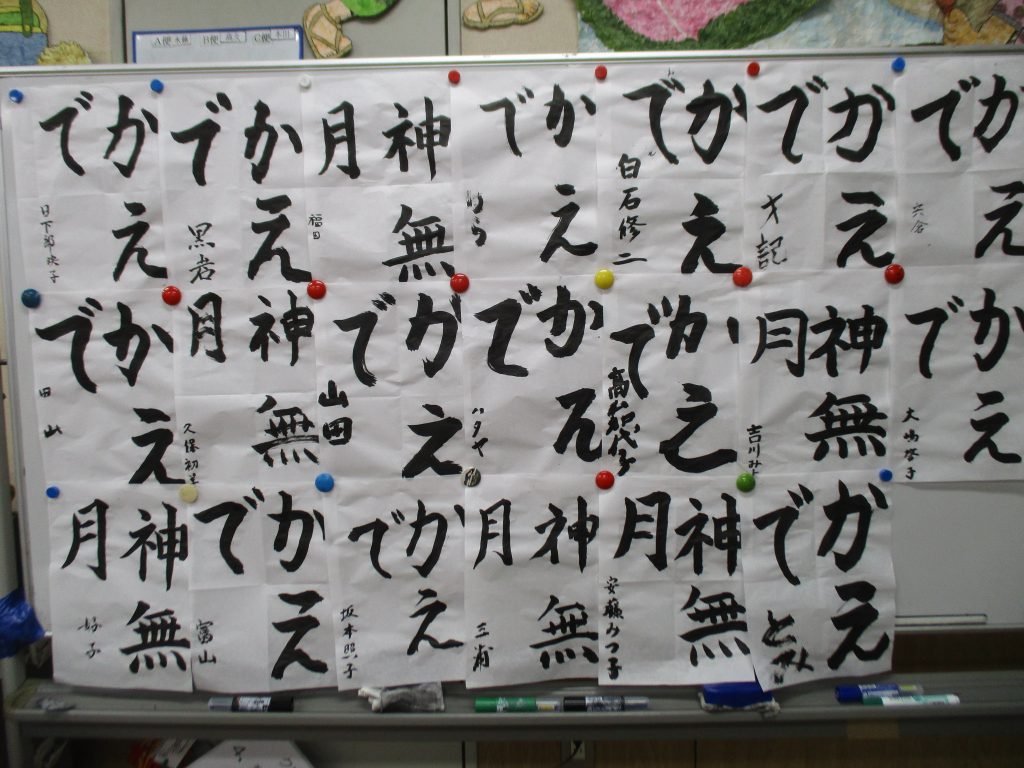 A便
B便
C便
かえ
で
日下部映子
かえ
で
黒岩
神無
月
福田
かえ
で
かえ
で
白石修二
かえ
で
かえ
で
宍倉
かえ
で
田山
神無
月
かえ
で
山田
かえ
で
ハタヤ
かえ
で
神無
月
かえ
で
大嶋啓子
神無
月
好子
かえ
で
富山
かえ
で
坂本照子
神無
月
三浦
神無
月
安藤みつ子
かえ
で